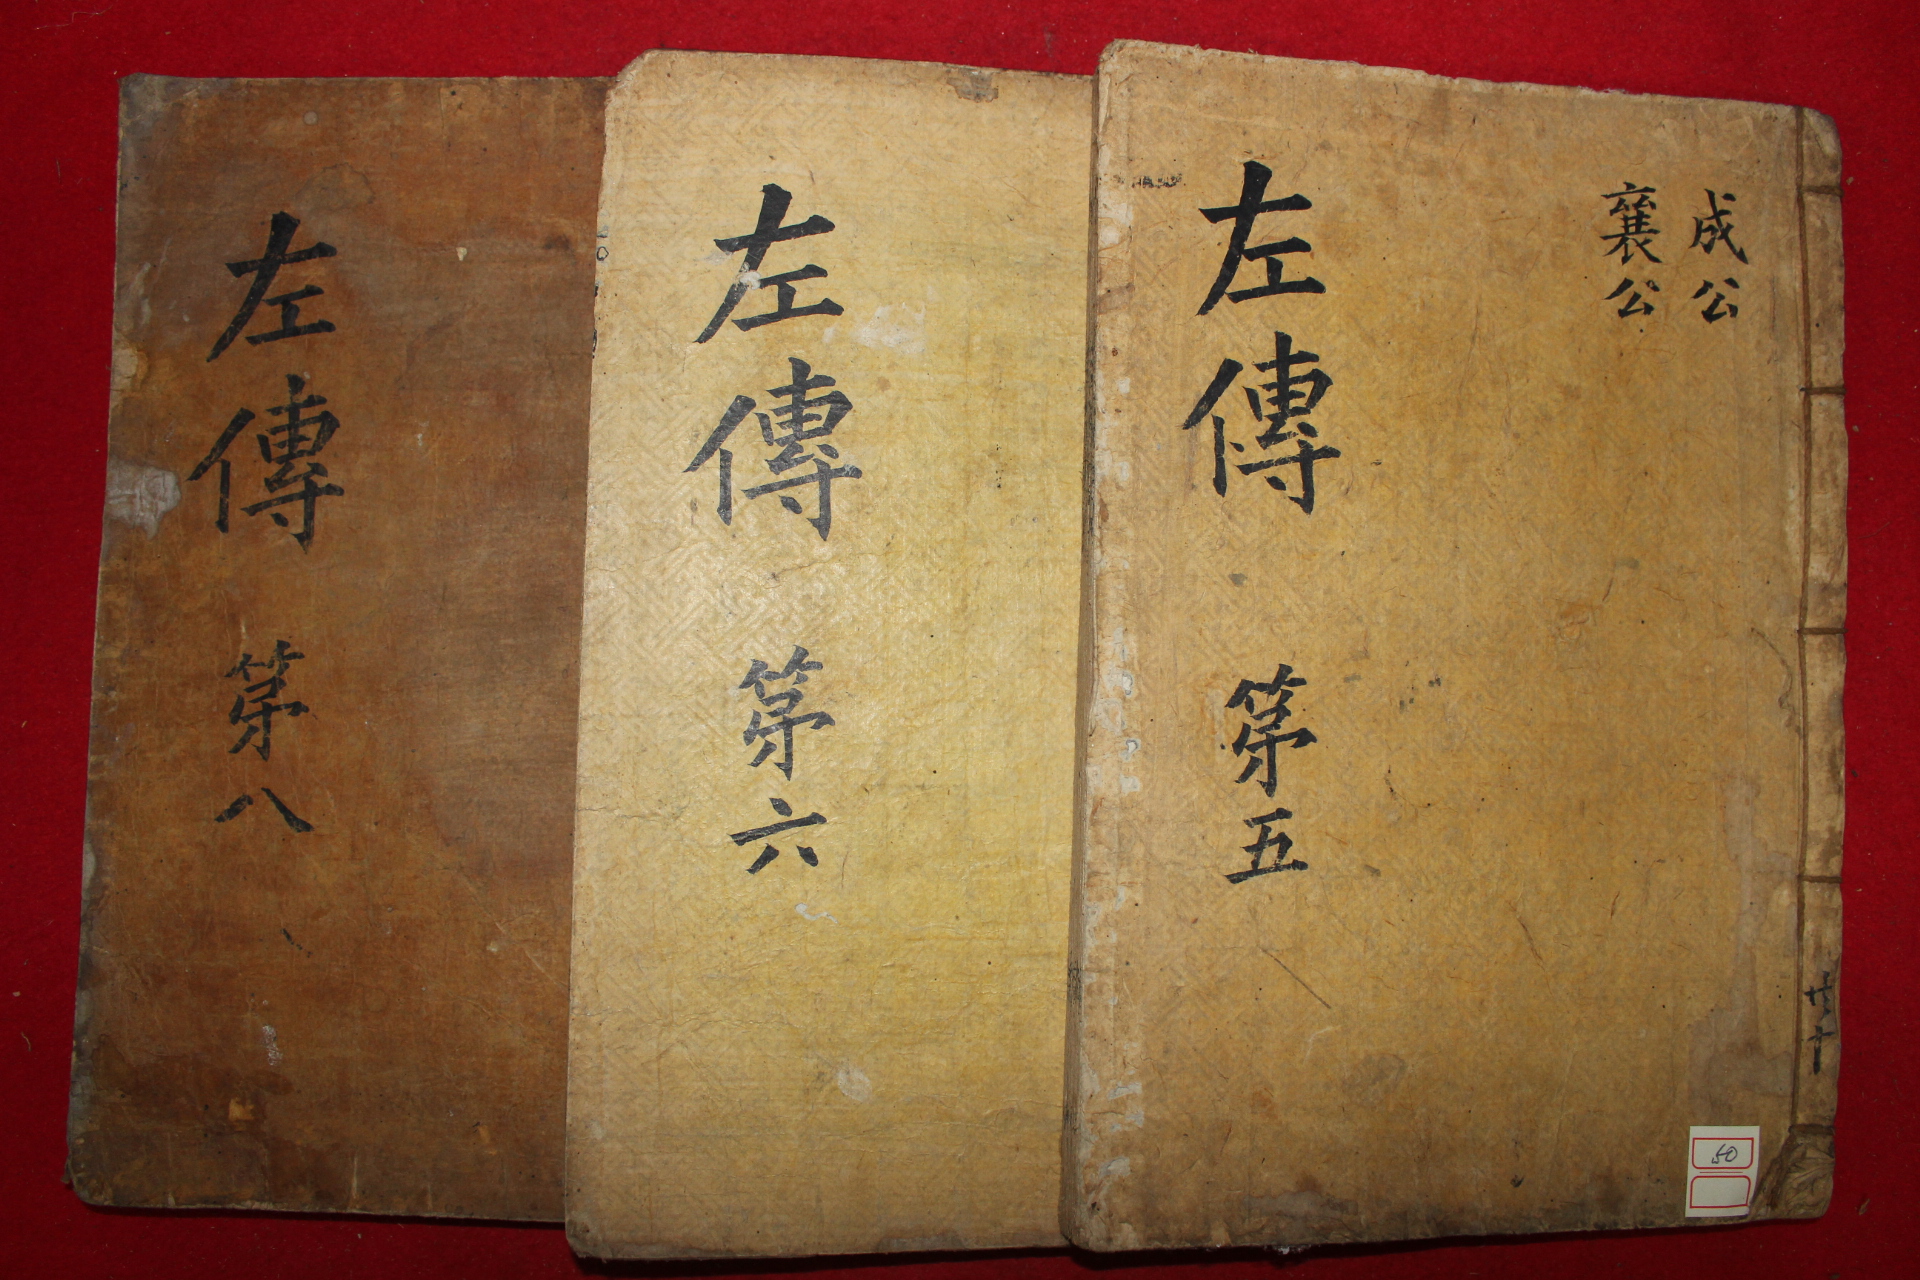 成公
襄公
左傳 第五
左傳 第六
左傳 第八
50